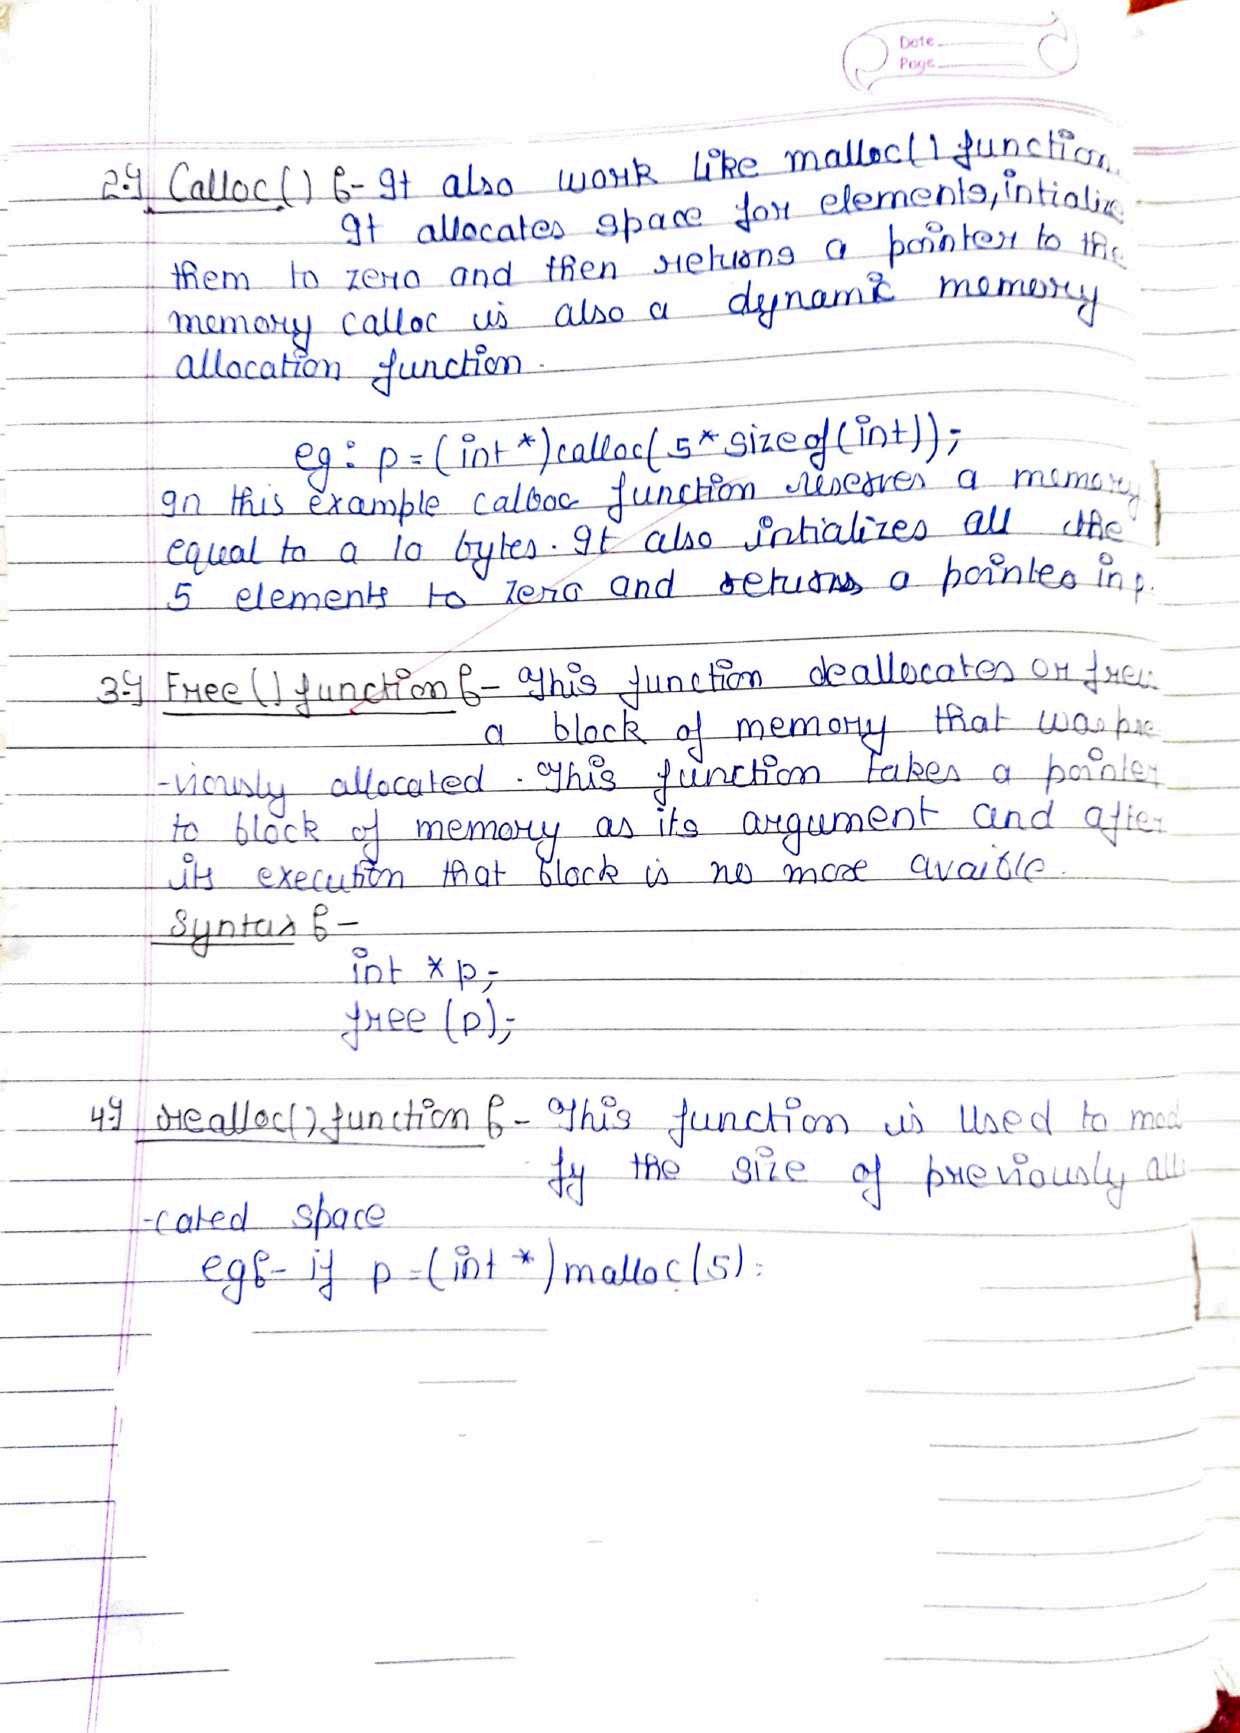 Date
Page
2.) Calloc() :- It also work like malloc() function.
It allocates space for elements, intialize
them to zero and then returns a pointer to the
memory calloc is also a dynamic memory
allocation function.
eg: p = (int *) calloc( 5* sizeof(int));
In this example calloc function reserves a memory
equal to a 10 bytes. It also intializes all the
5 elements to zero and returns a pointer in p.
3.) Free() function :- This function deallocates or free
a block of memory that was pre
-viously allocated. This function takes a pointer
to block of memory as its argument and after
its execution that block is no more avaible.
Syntax :-
int * p;
free (p);
4.) realloc() function :- This function is used to mod
fy the size of previously all
-cated space
eg:- if p = (int *) malloc (5);